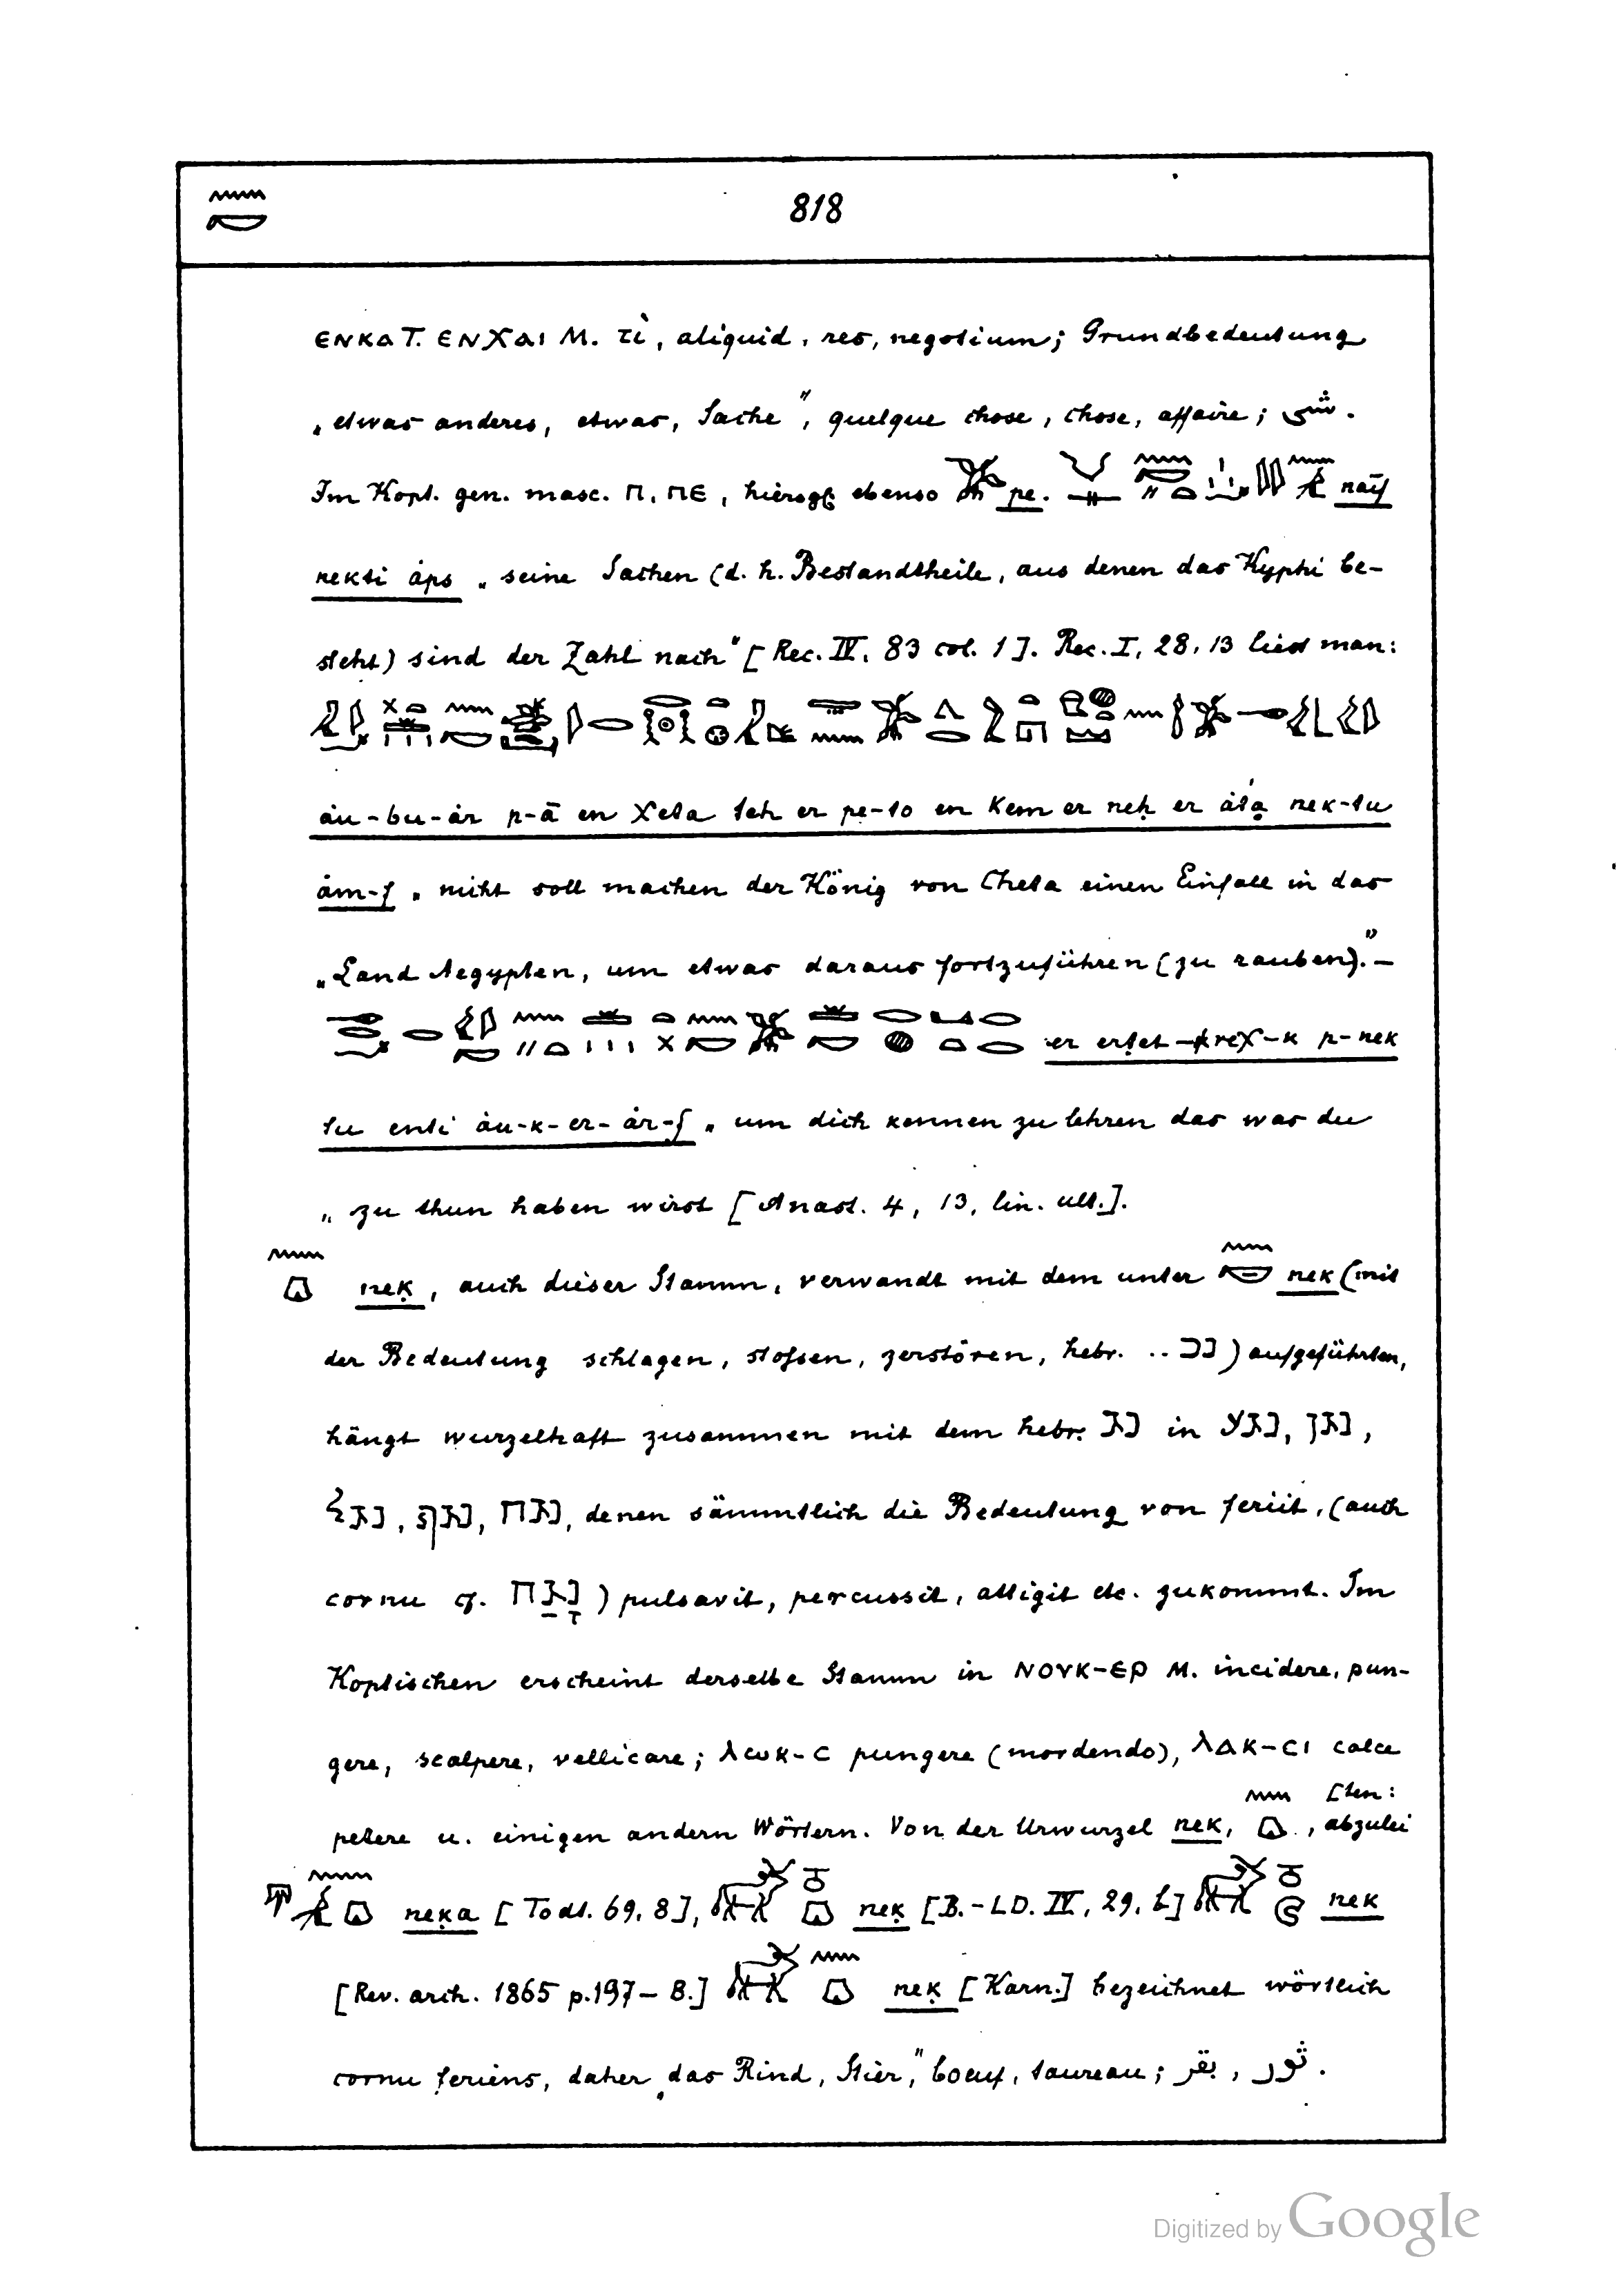 818
ⲉⲛⲕⲁ T. ⲉⲛⲭⲁⲓ M. τὶ, aliquid, res, negotium; Grundbedeutung
„etwas anderes, etwas, Sache", quelque chose, chose, affaire; شى.
Im Kopt. gen. masc. ⲡ, ⲡⲉ, hierogl. ebenso pe. naif
nekti áps „seine Sachen (d. h. Bestandtheile, aus denen das Kyphi be-
steht) sind der Zahl nach" [Rec. IV, 83 col. 1]. Rec. I, 28, 13 liest man:
áu-bu-ár p-ā en Xeta teh er pe-to en Kem er neḥ er áta nek-tu
ám-f „nicht soll machen der König von Cheta einen Einfall in das
„Land Aegypten, um etwas daraus fortzuführen (zu rauben)."—
er erṭet reχ-k p-nek
tu enti áu-k-er-ár-f „um dich kennen zu lehren das was du
„zu thun haben wirst [Anast. 4, 13, lin. ult.].
neḳ, auch dieser Stamm, verwandt mit dem unter nek (mit
der Bedeutung schlagen, stofsen, zerstören, hebr. ..נכ) aufgeführten,
hängt wurzelhaft zusammen mit dem hebr. נג in נגע, נגן,
נגל, נגף, נגח, denen sämmtlich die Bedeutung von feriit, (auch
cornu cf. נגח) pulsavit, percussit, attigit etc. zukommt. Im
Koptischen erscheint derselbe Stamm in ⲛⲟⲩⲕ-ⲉⲣ M. incidere, pun-
gere, scalpere, vellicare; ⲗⲱⲕ-ⲥ pungere (mordendo), ⲗⲁⲕ-ⲥⲓ calce
[ten:
petere u. einigen andern Wörtern. Von der Urwurzel neḳ, , abzulei
neḳa [Todt. 69, 8], neḳ [B.-LD. IV, 29, b] nek
[Rev. arch. 1865 p. 197— B.] neḳ [Karn.] bezeichnet wörtlich
cornu feriens, daher „das Rind, Stier", boeuf, taureau; بقر, ثور.
Digitized by Google